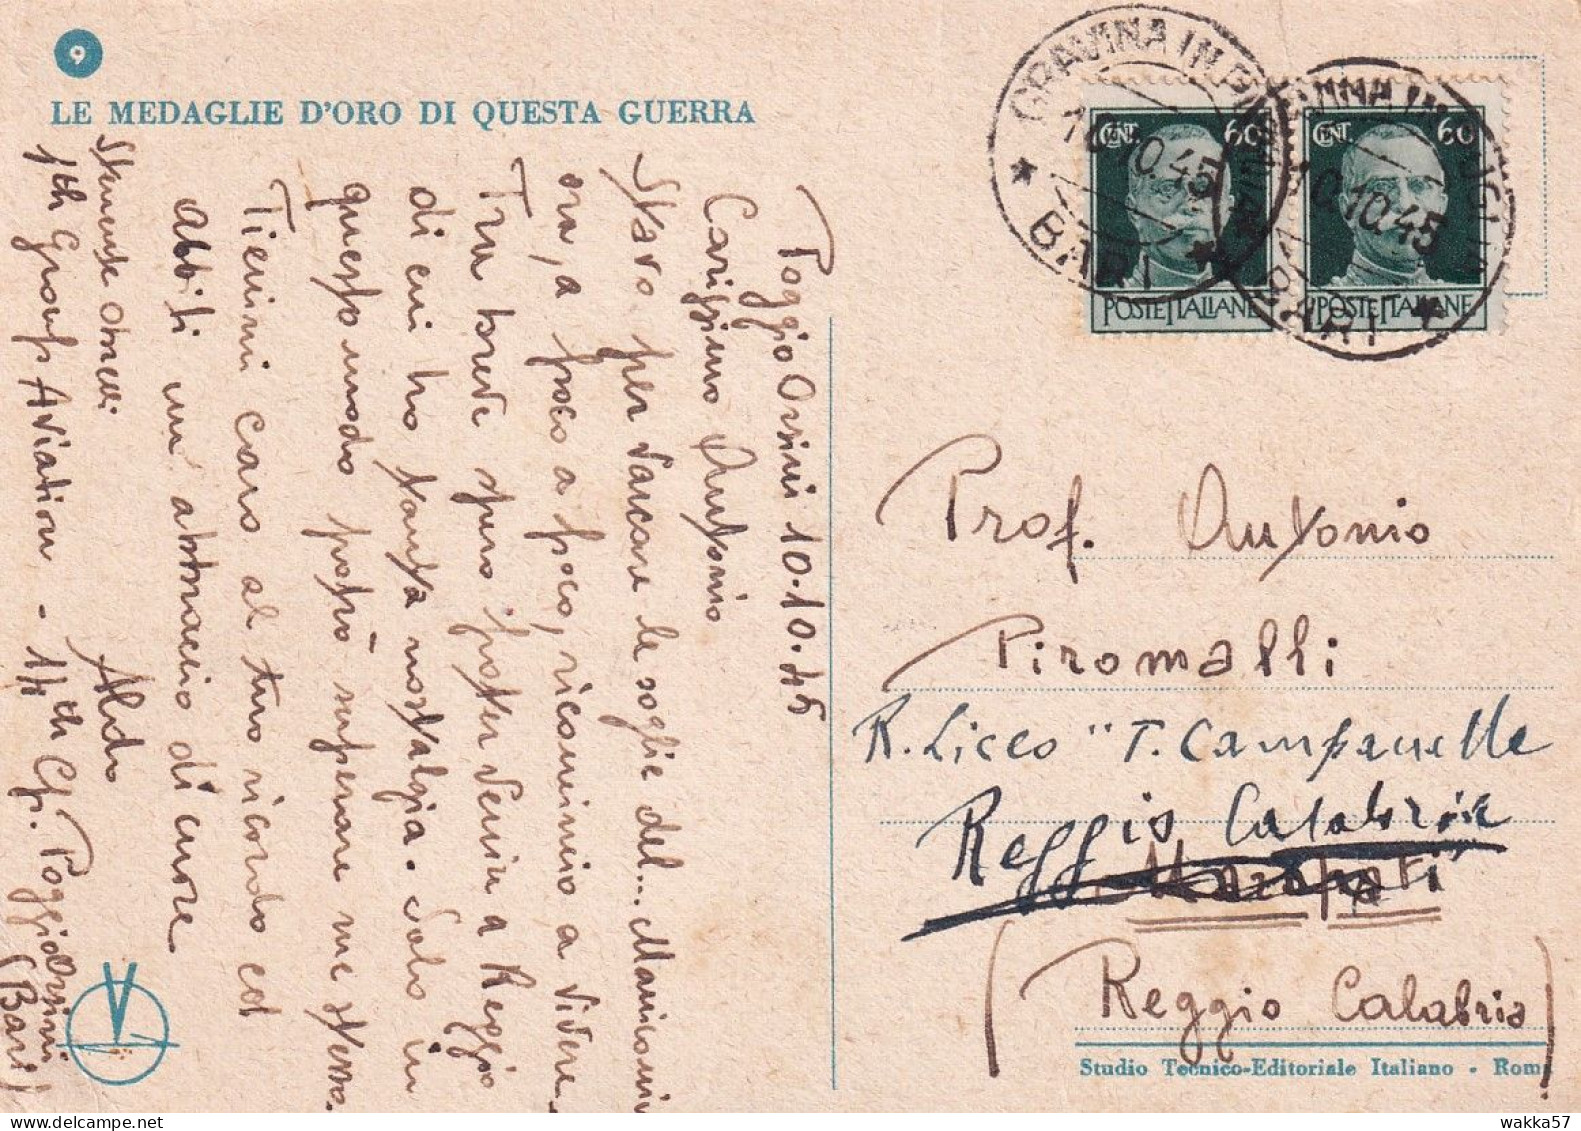 9
LE MEDAGLIE D'ORO DI QUESTA GUERRA
Poggio Orsini 10.10.45
Carissimo Antonio
Stavo per varcare le soglie del... Manicomio
ora, a poco a poco, ricomincio a vivere.
Tra breve spero poter venire a Reggio
di cui ho tanta nostalgia. Solo in
questo modo potrò superare me stesso.
Tienimi caro al tuo ricordo ed
abbiti un abbraccio di cuore
Aldo
1th Group Aviation - 14th Cp. Poggio Orsini
(Bari)
GRAVINA IN PUGLIA
10.10.45
BARI
GRAVINA IN PUGLIA
10.10.45
BARI
CENT. 60
POSTE ITALIANE
CENT. 60
POSTE ITALIANE
Prof. Antonio
Piromalli
R. Liceo "T. Campanella
Reggio Calabria
(Reggio Calabria)
Studio Tecnico-Editoriale Italiano - Roma
wakka57